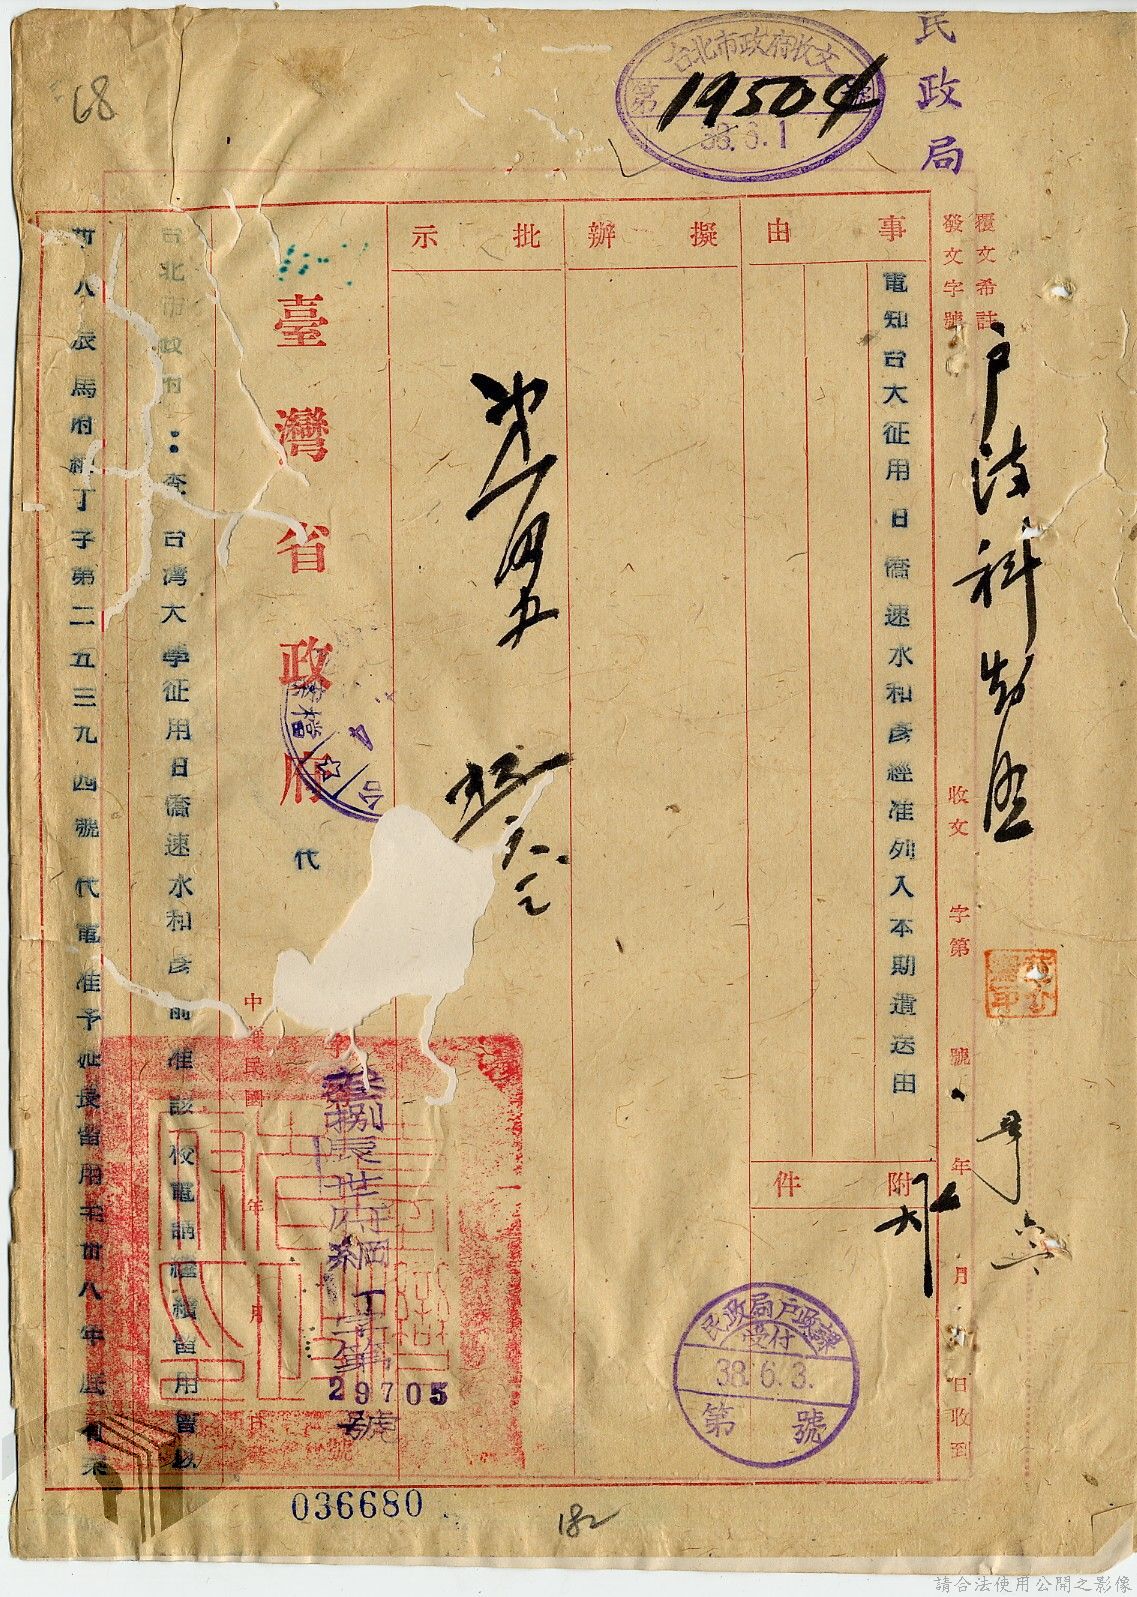 民政局
台北市政府收文
第 19504 號
38.6.1
68
覆文希註
發文字號
收文 字第 號 年 月 日收到
事由
電知台大征用日僑速水和彥經准列入本期遣送由
附件
擬辦
批示
臺灣省政府
代
中華民國 年 月
捌辰世府綱丁字第
29705
號
台北市政府：查台灣大學征用日僑速水和彥前准該校電請繼續留用曾以
卅八辰馬府綱丁子第二五三九四號代電准予延長留用至卅八年底有案
民政局戶政課
受付
38.6.3.
第 號
036680
182
請合法使用公開之影像